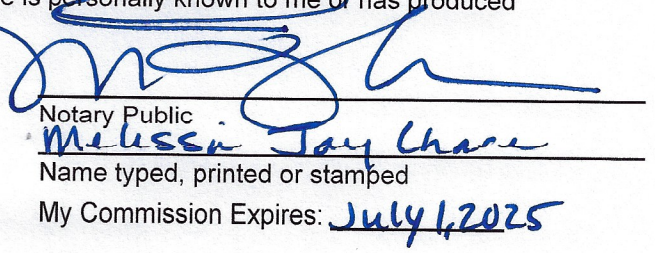 e is personally known to me or has produced
Notary Public
Melissa Jay Chase
Name typed, printed or stamped
My Commission Expires: July 1, 2025